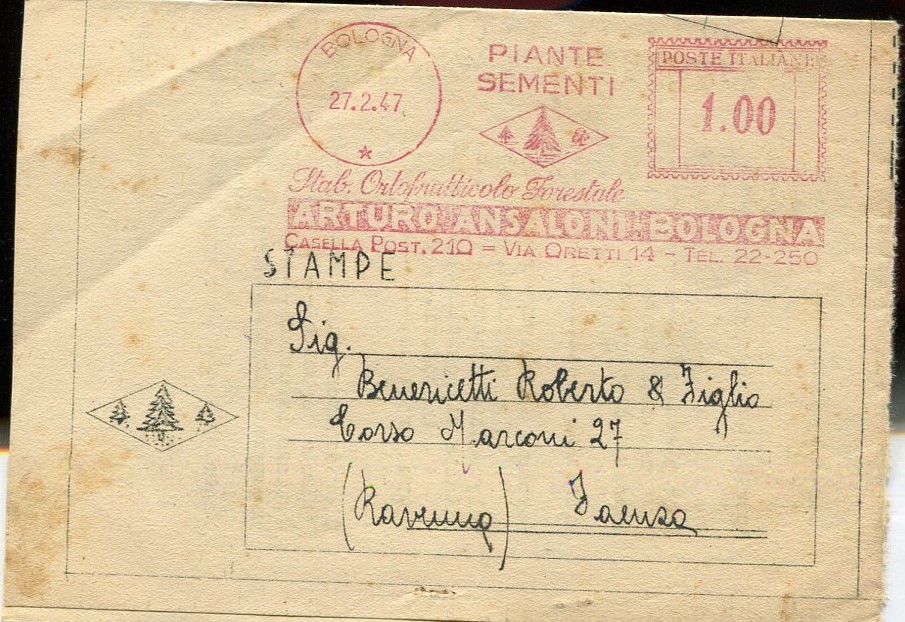 BOLOGNA
27.2.47
PIANTE
SEMENTI
POSTE ITALIANE
1.00
Stab. Ortofrutticolo Forestale
ARTURO ANSALONI - BOLOGNA
CASELLA POST. 210 = VIA ORETTI 14 - TEL. 22-250
STAMPE
Sig.
Benericetti Roberto & Figlio
Corso Marconi 27
(Ravenna) Faenza